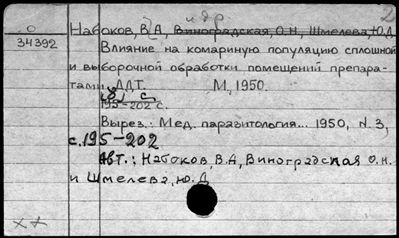 и др
2
О
34392
Набоков, В.А, Виноградская, О.Н., Шмелева, Ю.Д.
Влияние на комариную популяцию сплошной
и выборочной обработки помещений препара-
тами ДДТ. М, 1950.
8 с
195-202 с.
Вырез.: Мед. паразитология... 1950, N. 3,
с. 195-202
Авт.: Набоков, В.А, Виноградская О.Н.
и Шмелева, Ю.Д